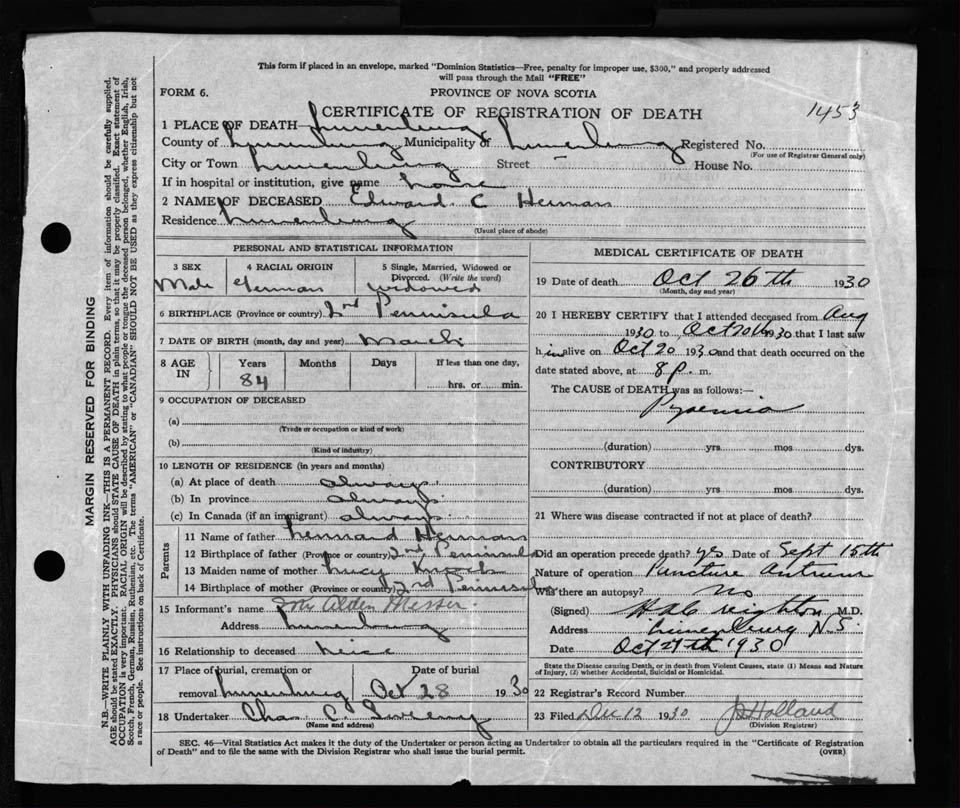 This form if placed in an envelope, marked "Dominion Statistics—Free, penalty for improper use, $300," and properly addressed
will pass through the Mail "FREE"
FORM 6.
PROVINCE OF NOVA SCOTIA
CERTIFICATE OF REGISTRATION OF DEATH
1453
1 PLACE OF DEATH Lunenburg
County of Lunenburg Municipality of Lunenburg Registered No.
(For use of Registrar General only)
City or Town Lunenburg Street — House No.
If in hospital or institution, give name home
2 NAME OF DECEASED Edward C Herman
Residence Lunenburg
(Usual place of abode)
PERSONAL AND STATISTICAL INFORMATION
3 SEX 4 RACIAL ORIGIN 5 Single, Married, Widowed or
Divorced. (Write the word)
Male German widowed
6 BIRTHPLACE (Province or country) 2nd Peninsula
7 DATE OF BIRTH (month, day and year) March
8 AGE IN Years Months Days If less than one day,
84 hrs. or min.
9 OCCUPATION OF DECEASED
(a)
(Trade or occupation or kind of work)
(b)
(Kind of industry)
10 LENGTH OF RESIDENCE (in years and months)
(a) At place of death always
(b) In province always
(c) In Canada (if an immigrant) always
Parents
11 Name of father Lennard Herman
12 Birthplace of father (Province or country) 2nd Peninsula
13 Maiden name of mother Lucy
14 Birthplace of mother (Province or country) 2nd Peninsula
15 Informant's name Mrs Alden Messer
Address Lunenburg
16 Relationship to deceased Neice
17 Place of burial, cremation or Date of burial
removal Lunenburg Oct 28 1930
18 Undertaker Chas C. Sweeny
(Name and address)
MEDICAL CERTIFICATE OF DEATH
19 Date of death Oct 26th 1930
(Month, day and year)
20 I HEREBY CERTIFY that I attended deceased from Aug
1930 to Oct 20th 1930 that I last saw
him alive on Oct 20 1930 and that death occurred on the
date stated above, at 8 p. m.
The CAUSE of DEATH was as follows:
Pyaemia
(duration) yrs mos dys.
CONTRIBUTORY
(duration) yrs. mos dys.
21 Where was disease contracted if not at place of death?
Did an operation precede death? yes Date of Sept 15th
Nature of operation Puncture Antrum
Was there an autopsy? No
(Signed) H A Creighton M.D.
Address Lunenburg N.S.
Date Oct 27th 1930
State the Disease causing Death, or in death from Violent Causes, state (1) Means and Nature
of Injury, (2) whether Accidental, Suicidal or Homicidal.
22 Registrar's Record Number
23 Filed Dec 12 1930 J Holland
(Division Registrar)
SEC. 46—Vital Statistics Act makes it the duty of the Undertaker or person acting as Undertaker to obtain all the particulars required in the "Certificate of Registration
of Death" and to file the same with the Division Registrar who shall issue the burial permit. (OVER)
MARGIN RESERVED FOR BINDING
N.B.—WRITE PLAINLY WITH UNFADING INK—THIS IS A PERMANENT RECORD. Every item of information should be carefully supplied.
AGE should be stated EXACTLY. PHYSICIANS should STATE CAUSE OF DEATH in plain terms, so that it may be properly classified. Exact statement of
OCCUPATION is very important. RACIAL ORIGIN will be described by stating to what people or tongue the deceased person belonged, whether English, Irish,
Scotch, French, German, Russian, Ruthenian, etc. The terms "AMERICAN" or "CANADIAN" SHOULD NOT BE USED as they express citizenship but not
a race or people. See instructions on back of Certificate.